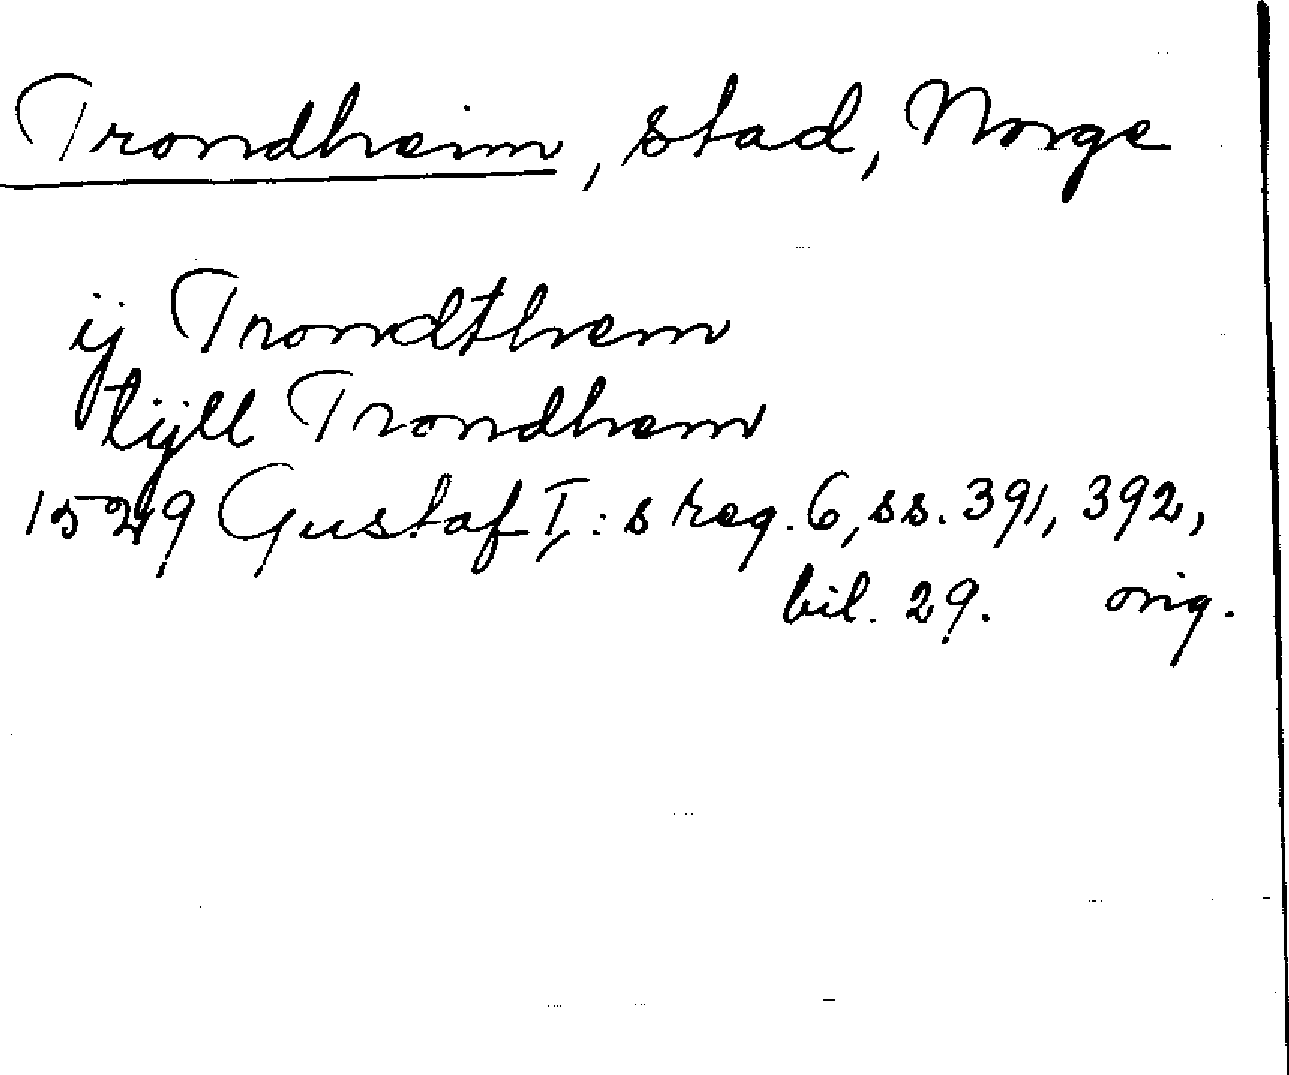 Trondheim, stad, Norge
ij Trondthem
tijll Trondhem
1529 Gustaf I:s reg. 6, ss. 391, 392,
bil. 29. orig.